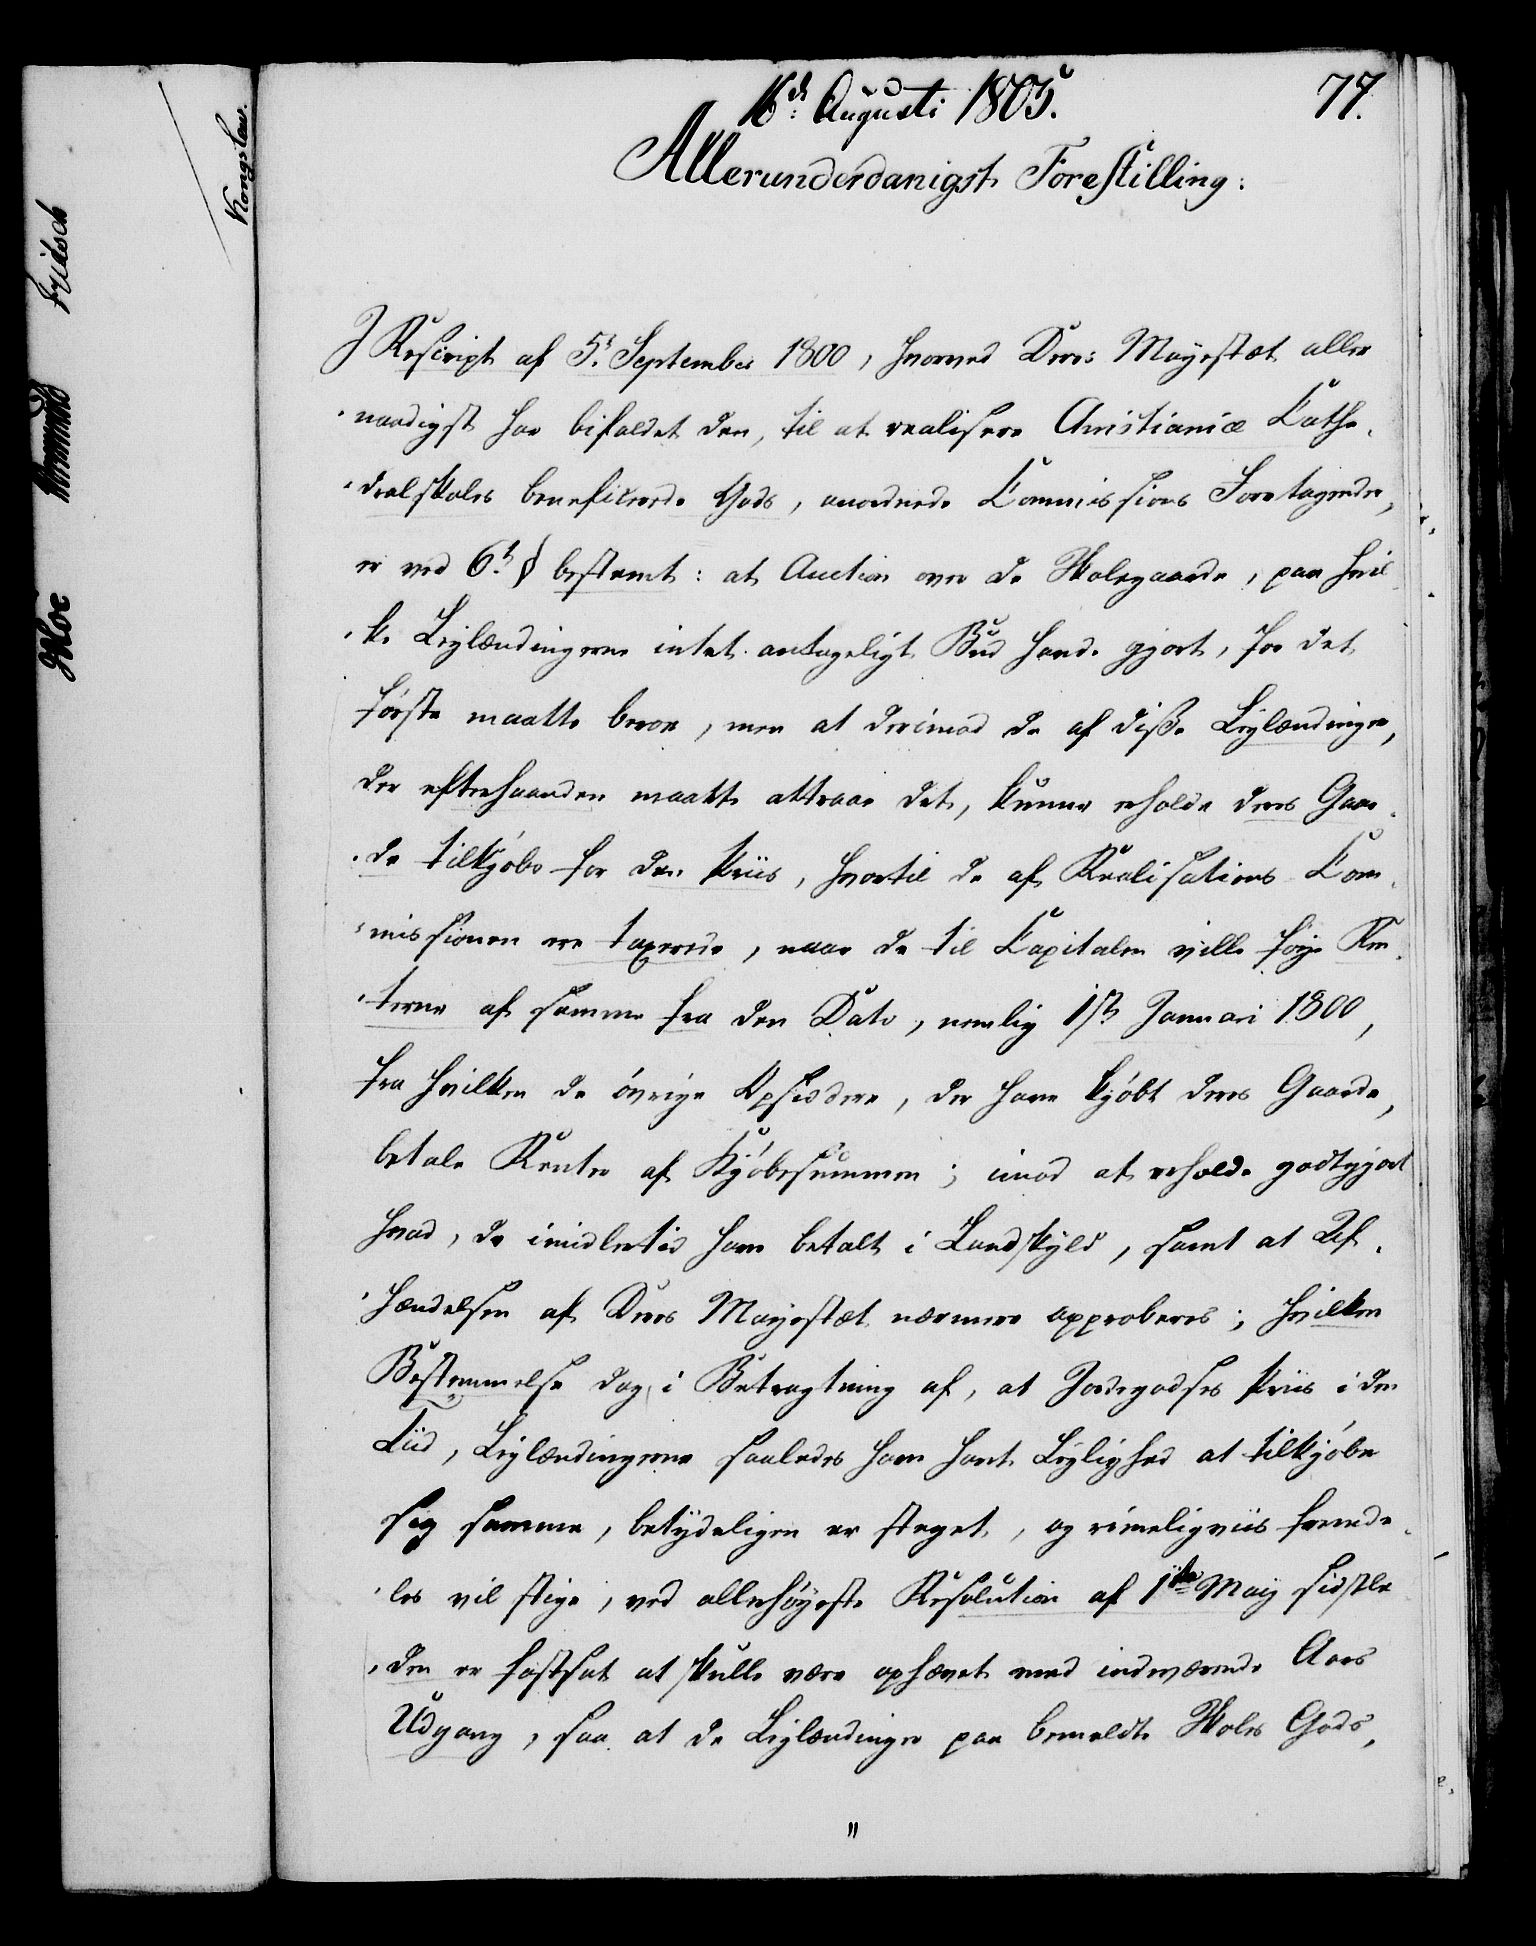 16de Augusti 1805.
77.
Allerunderdanigst Forestilling:
I Rescript af 5t. September 1800, hvorved Deres Mayestæt aller
naadigst har bifaldet den, til at realisere Christianiæ Cathe-
dralskoles beneficerede Gods, anordnede Commissions Foretagender,
er ved 6t. § bestemt: at Auction over de Skolegaarde, paa hvil
ke Leylændingerne intet antageligt Bud havde gjort, for det
første maatte beroe, men at derimod de af disse Leylændinger,
der efterhaanden maatte attraae det, kunne erholde deres Gaar-
de tilkjøbs for den Priis, hvortil de af Realisations Com-
missionen ere taxerede, naar de til Capitalen ville føye Ren-
terne af samme fra den Dato, nemlig 1st. Januari 1800,
fra hvilken de øvrige Opsiddere, der have kjøbt deres Gaarde,
betale Renter af Kjøbesummen; imod at erholde godtgjort
hvad, de imidlertid have betalt i Landskyld, samt at Af-
hændelsen af Deres Mayestæt nærmere approberes; hvilken
Bestemmelse dog, i Betragtning af, at Jordegodsets Priis i den
Tiid, Leylændingerne saaledes have havt Leylighed at tilkjøbe
sig samme, betydeligen er steget, og rimeligviis fremde-
les vil stige, ved allerhøyeste Resolution af 1ste May sidstle
den er fastsat at skulle være ophævet med indeværende Aars
Udgang, saa at de Leylændinger paa bemeldte Skoles Gods,
"
Kongslew.
Fridsch
Hammond
Moe